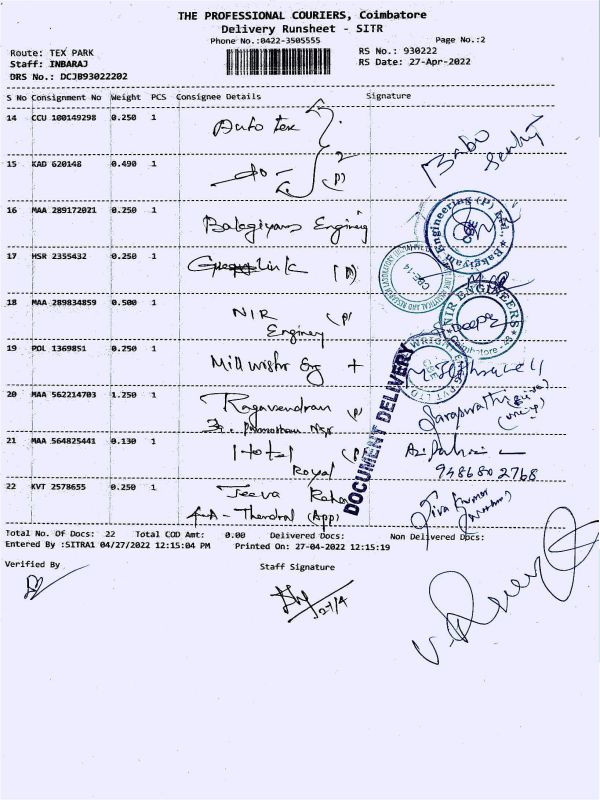 THE PROFESSIONAL COURIERS, Coimbatore
Delivery Runsheet - SITR
Phone No.:0422-3505555
Page No.:2
Route: TEX PARK
RS No.: 930222
Staff: INBARAJ
RS Date: 27-Apr-2022
DRS No.: DCJB93022202
S No Consignment No Weight PCS Consignee Details Signature
14 CCU 100149298 0.250 1 Auto tex
Babo
15 KAD 620148 0.490 1 -do- (P)
16 MAA 289172021 0.250 1
Engineering (P) Ltd.,
17 HSR 2355432 0.250 1 Link
CBE-14
18 MAA 289834859 0.500 1 NIR
NIR ENGINEERS
Deepa
Coimbatore - 28
19 PDL 1369851 0.250 1 Eng
DOCUMENT DELIVERY
20 MAA 562214703 1.250 1 Ragavendran
21 MAA 564825441 0.130 1 Hotel (P)
Royal
9486802768
22 KVT 2578655 0.250 1 Jeeva
Siva Kumar
(App)
Total No. Of Docs: 22 Total COD Amt: 0.00 Delivered Docs: Non Delivered Docs:
Entered By :SITRA1 04/27/2022 12:15:04 PM Printed On: 27-04-2022 12:15:19
Verified By
Staff Signature
27/4